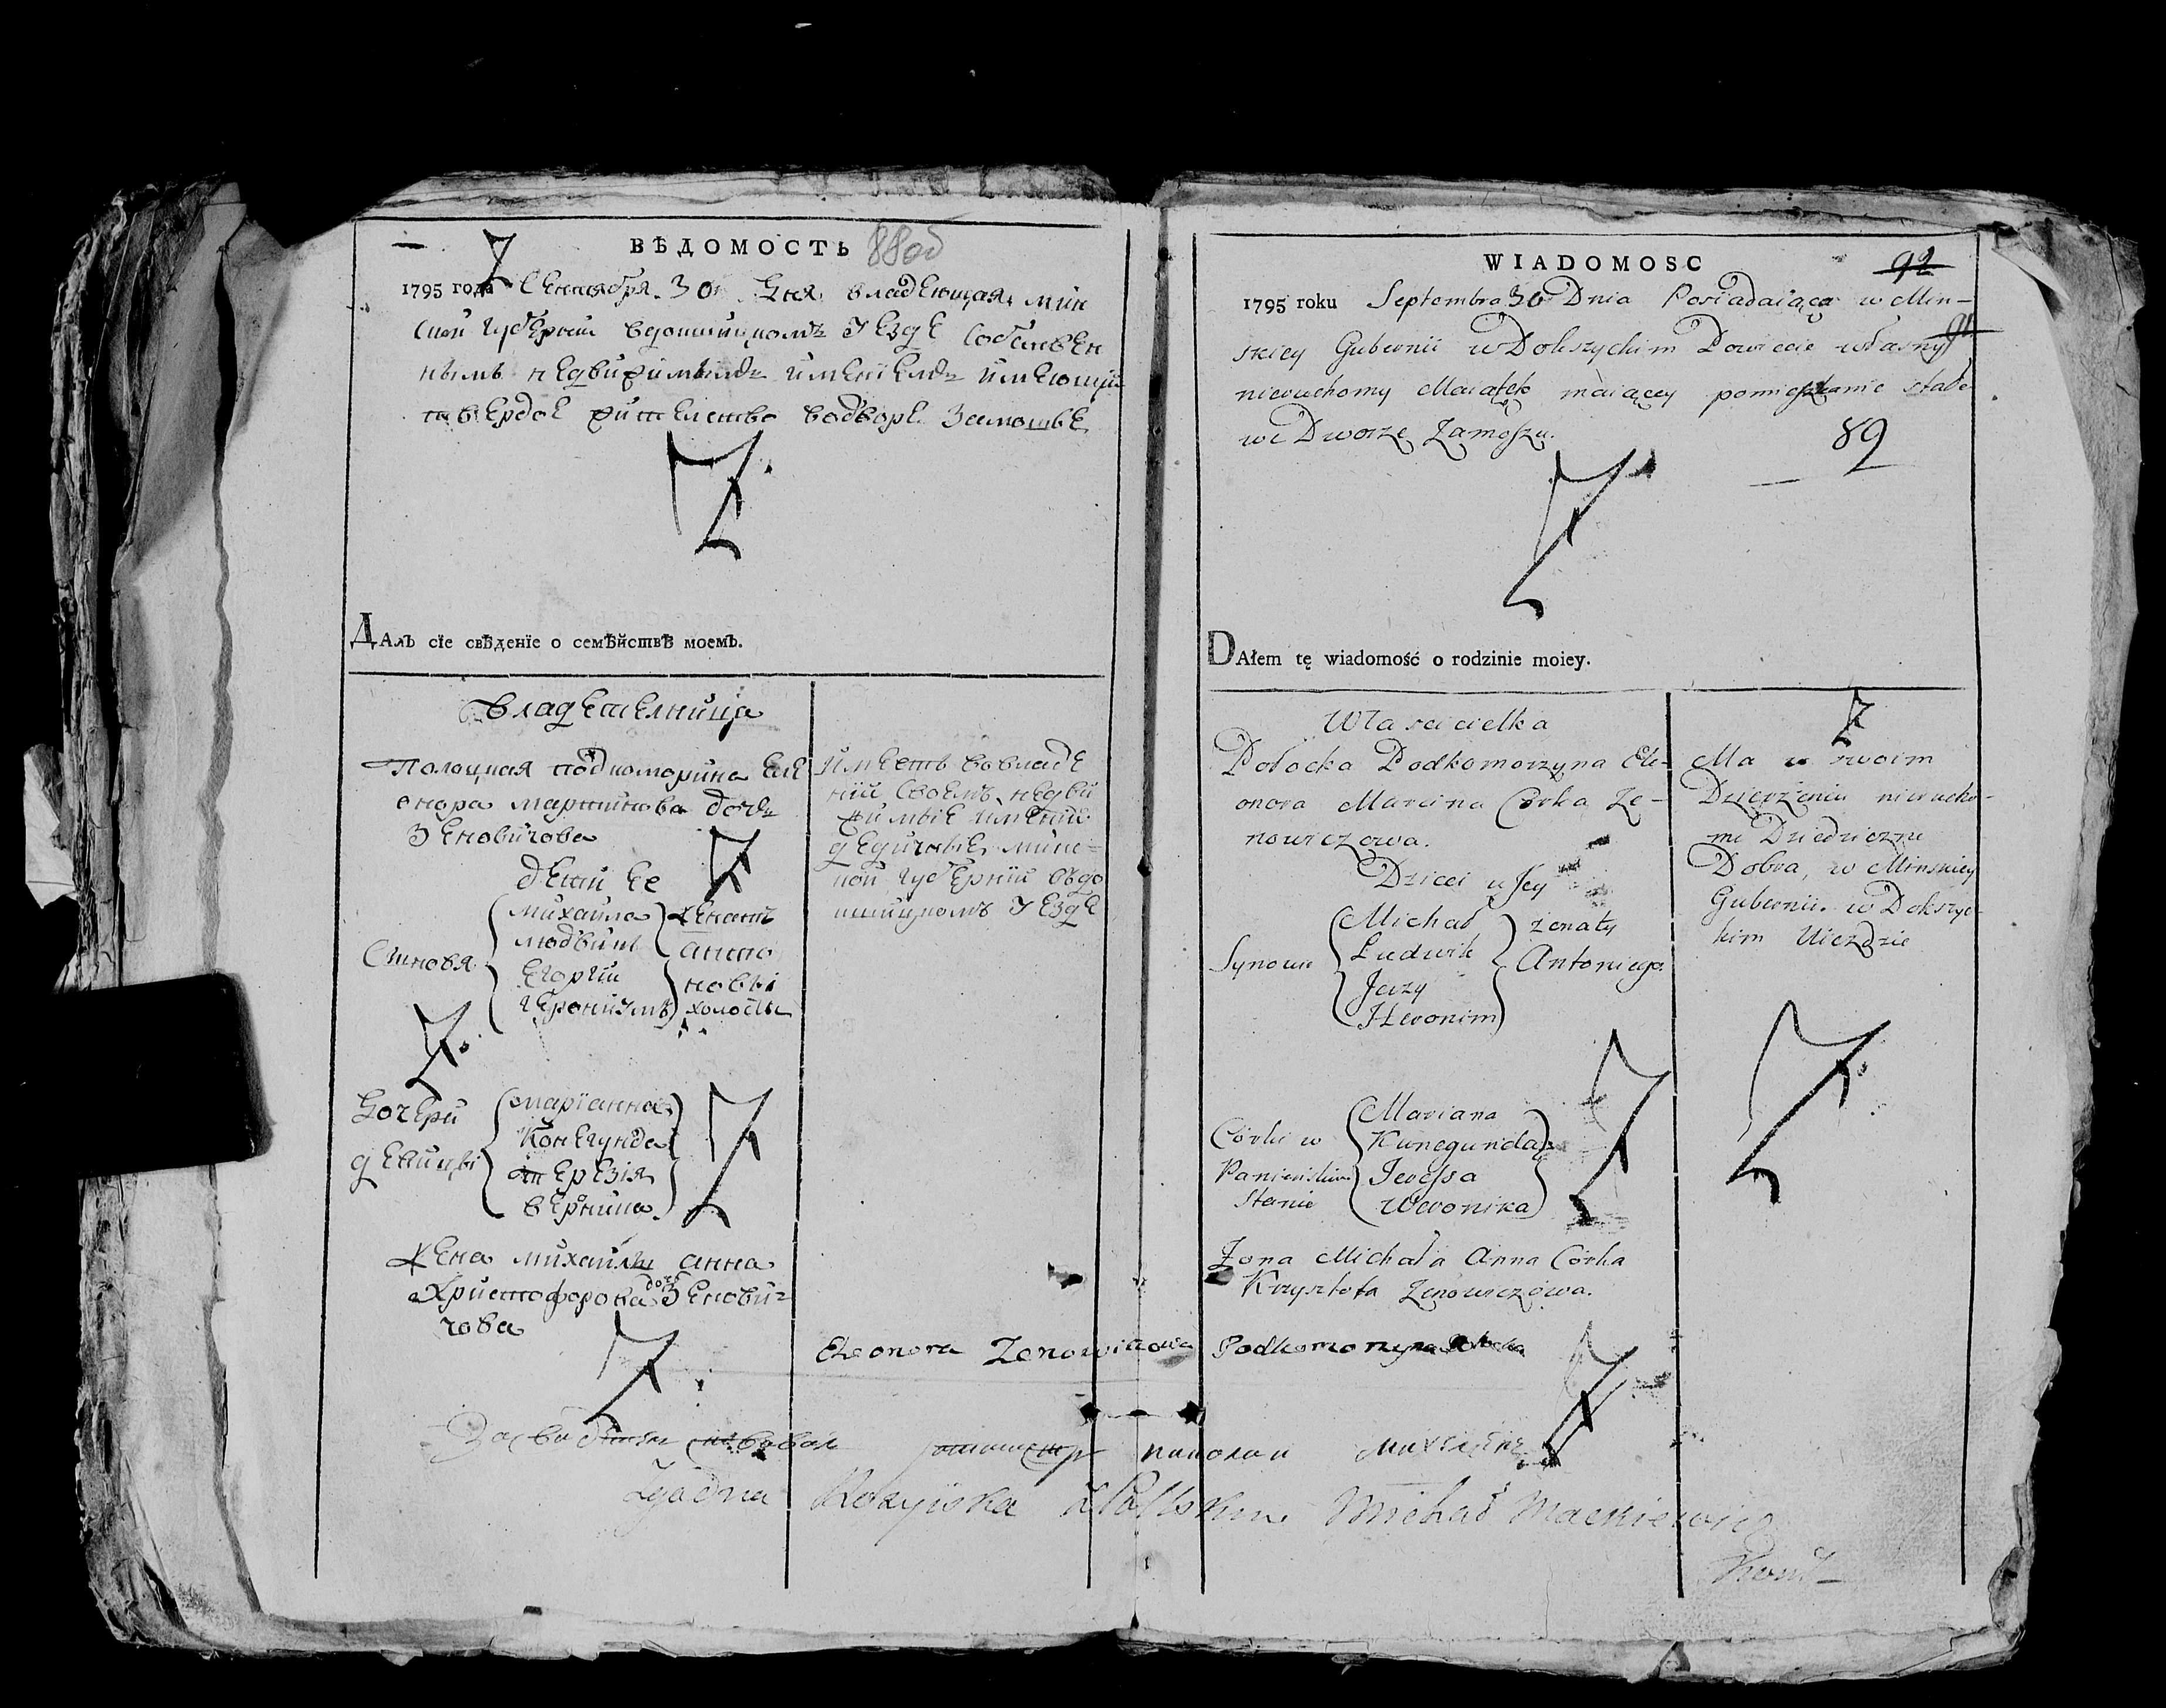 ВѢДОМОСТЬ 88об
1795 года Сентября 30 дня владеющая мин
ской губернии вдокшицкомъ уезде собствен
нымъ недвижимымъ имениемъ имеющи
твердое жителство водворе Замошье
Далъ сїе свѣденїе о семѣйствѣ моемъ.
владетелница
Полоцкая подкоморина Еле
онора мартинова дочь
Зеновичова
дети ее
Синовя
михайла
людвикъ
Егоргий
Героним
женатъ
анто
новы
холосты
Дочери
девицы
марїанна
Конегунда
терезїя
верника
Жена михайлы анна
Христофорова дочь Зенови-
чова
Имеетъ вовладе
нии своемъ недви
жимые имении
дедичные минс-
кой губернии вдо
кшицкомъ уезде
WIADOMOSC 92
1795 roku Septembra 30 Dnia Posiadaiąca w Min-
skiey Gubernii w Dokszyckim Powiecie własny 91
nieruchomy Maiątek maiącey pomieszkanie stałe
we Dworze Zamoszu.
89
DAłem tę wiadomość o rodzinie moiey.
Własicielka
Połocka Podkomorzyna Ele-
onora Marcina Córka Ze-
nowiczowa.
Dzieci u Jey
Synowie
Michał
Ludwik
Jerzy
Heronim
żonaty
Antoniego
Córki w
Panieńskim
Stanie
Mariana
Kunegunda
Teressa
Weronika
Żona Michała Anna Córka
Krzysztofa Zenowiczowa.
Ma w swoim
Dzierżeniu nierucho-
me Dziedziczne
Dobra, w Minskiey
Gubernii w Dokszyc-
kim Uiezdzie
Eleonora Zenowiczowa Podkomorzyna Połocka
ротмистр николаи
Zgodna Rosyiska z Polskim Michał Mackiewicz